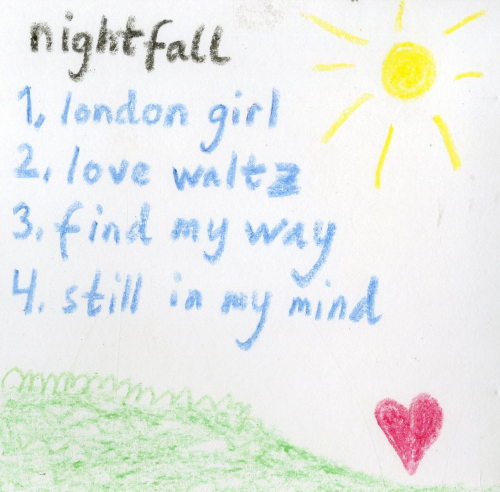 nightfall
1. london girl
2. love waltz
3. find my way
4. still in my mind